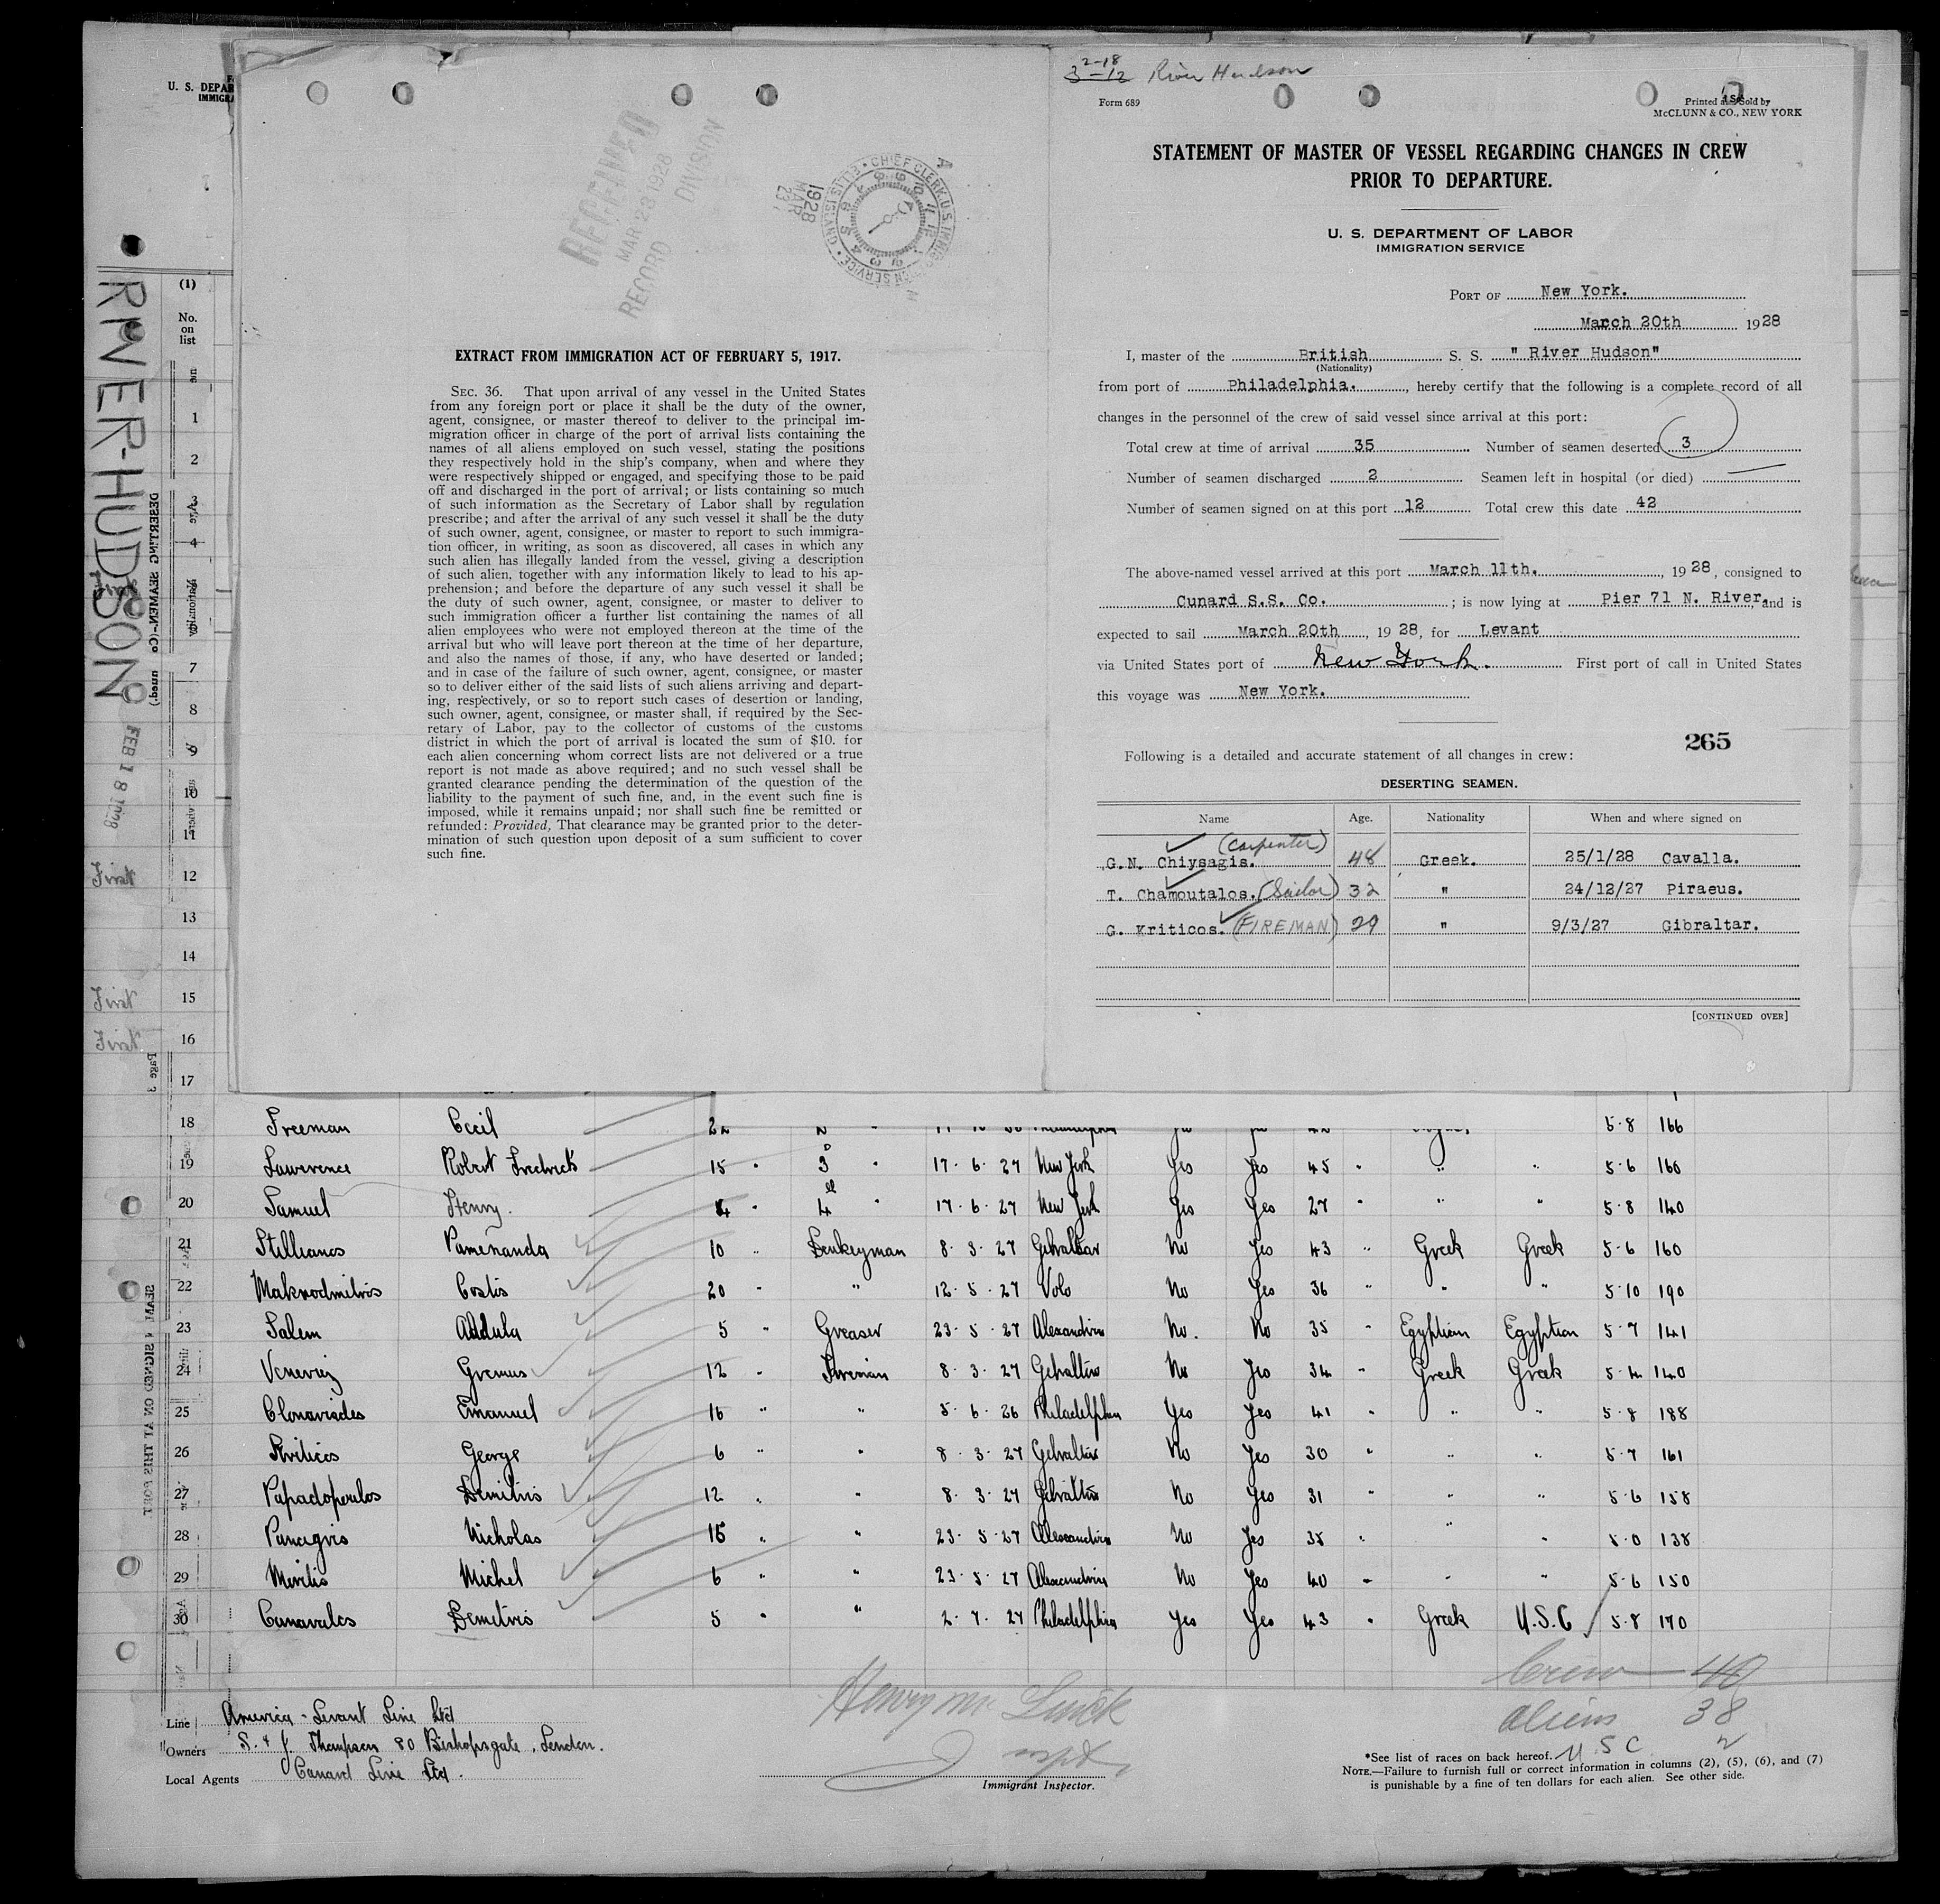 U. S. DEPAR
IMMIGRA
RIVER-HUDSON
FEB 18 1928
RECEIVED
MAR 23 1928
RECORD DIVISION
1928
MAR
23
CHIEF CLERK U.S. IMMIGRATION SERVICE • ELLIS ISLAND
EXTRACT FROM IMMIGRATION ACT OF FEBRUARY 5, 1917.
SEC. 36. That upon arrival of any vessel in the United States
from any foreign port or place it shall be the duty of the owner,
agent, consignee, or master thereof to deliver to the principal im-
migration officer in charge of the port of arrival lists containing the
names of all aliens employed on such vessel, stating the positions
they respectively hold in the ship's company, when and where they
were respectively shipped or engaged, and specifying those to be paid
off and discharged in the port of arrival; or lists containing so much
of such information as the Secretary of Labor shall by regulation
prescribe; and after the arrival of any such vessel it shall be the duty
of such owner, agent, consignee, or master to report to such immigra-
tion officer, in writing, as soon as discovered, all cases in which any
such alien has illegally landed from the vessel, giving a description
of such alien, together with any information likely to lead to his ap-
prehension; and before the departure of any such vessel it shall be
the duty of such owner, agent, consignee, or master to deliver to
such immigration officer a further list containing the names of all
alien employees who were not employed thereon at the time of the
arrival but who will leave port thereon at the time of her departure,
and also the names of those, if any, who have deserted or landed;
and in case of the failure of such owner, agent, consignee, or master
so to deliver either of the said lists of such aliens arriving and depart-
ing, respectively, or so to report such cases of desertion or landing,
such owner, agent, consignee, or master shall, if required by the Sec-
retary of Labor, pay to the collector of customs of the customs
district in which the port of arrival is located the sum of $10. for
each alien concerning whom correct lists are not delivered or a true
report is not made as above required; and no such vessel shall be
granted clearance pending the determination of the question of the
liability to the payment of such fine, and, in the event such fine is
imposed, while it remains unpaid; nor shall such fine be remitted or
refunded: Provided, That clearance may be granted prior to the deter-
mination of such question upon deposit of a sum sufficient to cover
such fine.
2-18
3-12 River Hudson
Form 689
Printed and Sold by
McCLUNN & CO., NEW YORK
STATEMENT OF MASTER OF VESSEL REGARDING CHANGES IN CREW
PRIOR TO DEPARTURE.
U. S. DEPARTMENT OF LABOR
IMMIGRATION SERVICE
PORT OF New York.
March 20th 1928
I, master of the British S. S. " River Hudson"
(Nationality)
from port of Philadelphia. , hereby certify that the following is a complete record of all
changes in the personnel of the crew of said vessel since arrival at this port:
Total crew at time of arrival 35 Number of seamen deserted 3
Number of seamen discharged 2 Seamen left in hospital (or died) —
Number of seamen signed on at this port 12 Total crew this date 42
The above-named vessel arrived at this port March 11th. , 1928, consigned to
Cunard S.S. Co. ; is now lying at Pier 71 N. River. and is
expected to sail March 20th , 1928, for Levant
via United States port of New York. First port of call in United States
this voyage was New York.
265
Following is a detailed and accurate statement of all changes in crew:
DESERTING SEAMEN.
Name Age. Nationality When and where signed on
G.N. Chiysagis. (Carpenter) 48 Greek. 25/1/28 Cavalla.
T. Chamoutalos. (Sailor) 32 " 24/12/27 Piraeus.
G. Kriticos. (FIREMAN) 29 " 9/3/27 Gibraltar.
[CONTINUED OVER]
(1)
No.
on
list
1
2
3
4
7
8
9
10
11
First 12
13
14
First 15
First 16
17
18 Freeman Cecil 22 5·8 166
19 Lawerence Robert Fredrick 15 " 3 " 17·6·27 New York Yes Yes 45 " " " 5·6 160
20 Samuel Henry. 4 " 4 " 17·6·27 New York Yes Yes 27 " " " 5·8 140
21 Stillianos Pamenanda 10 " Donkeyman 8·3·27 Gibraltar No Yes 43 " Greek Greek 5·6 160
22 Costis 20 " " 12·5·27 Volo No Yes 36 " " " 5·10 190
23 Salem Abdula 5 " Greaser 23·5·27 Alexandria No. No 35 " Egyptian Egyptian 5·7 141
24 12 " Fireman 8·3·27 Gibraltar No Yes 34 " Greek Greek 5·4 140
25 Emanuel 16 " " 5·6·26 Philadelphia Yes Yes 41 " " " 5·8 188
26 George 6 " " 8·3·27 Gibraltar No Yes 30 " " " 5·7 161
27 Papadopoulos Demitris 12 " " 8·3·27 Gibraltar No Yes 31 " " " 5·6 158
28 Nicholas 15 " " 23·5·27 Alexandria No Yes 35 " " " 5·0 138
29 Michel 6 " " 23·5·27 Alexandria No Yes 40 " " " 5·6 150
30 Canavalos Demitris 5 " " 2·7·27 Philadelphia Yes Yes 43 " Greek U.S.C 5·8 170
Crew — 40
aliens 38
U S C 2
Line America - Levant Line Ltd
Owners S. & J. Thompson 80 Bishopsgate, London.
Local Agents Cunard Line Ltd.
Immigrant Inspector.
*See list of races on back hereof.
NOTE.—Failure to furnish full or correct information in columns (2), (5), (6), and (7)
is punishable by a fine of ten dollars for each alien. See other side.